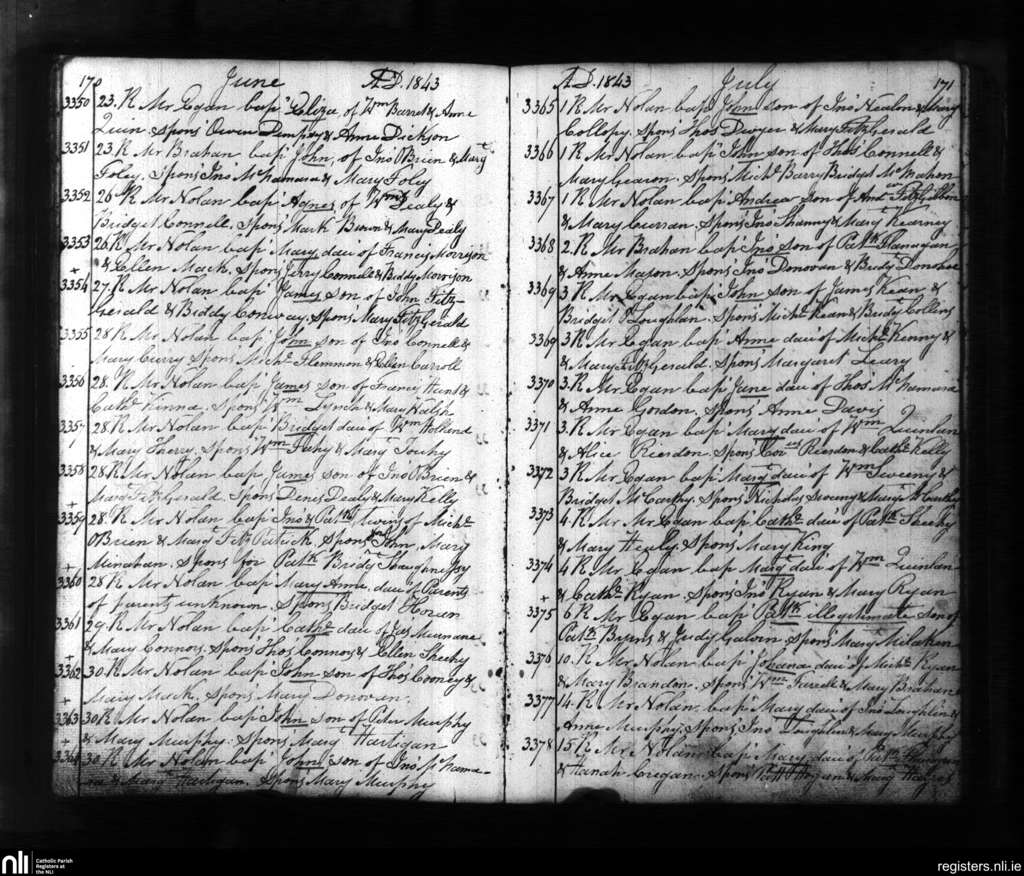 170 June A.D. 1843
3350 23. R Mr Egan bap.d Eliza of Wm Barret & Anne
Quin. Spons Owen Dempsy & Anne Dickson
3351 23 R Mr Brahan bap.d John, of Jno OBrien & Mary
Foley. Spons Jno McNamara & Mary Foly
3352 26 R Mr Nolan bap.d Agnes of Wm Dealy &
Bridget Connell. Spons Mark Brown & Mary Dealy
3353 26. R Mr Nolan bap.d Mary dau of Francis Morrison
& Ellen Mack. Spons Jerry Connell & Biddy Morrison
3354 27. R Mr Nolan bap.d James son of John Fitz-
Gerald & Biddy Conway. Spons Mary FitzGerald
3355 28 R Mr Nolan bap.d John son of Jno Connell &
Mary Curry Spons Michl. Flemmon & Ellen Carroll
3356 28. R Mr Nolan bap.d James son of Francis Hunt &
Cathe Kinna. Spons Wm Lynch & Mary Walsh
3357 28 R Mr Nolan bap.d Bridget dau of Wm Holland
& Mary Sherry. Spons Wm Fahy & Mary Touhy
3358 28 R Mr Nolan bap.d James son of Jno OBrien &
Mary FitzGerald. Spons Denis Dealy & Mary Kelly
3359 28. R Mr Nolan bap.d Jno & Patk twins of Michl.
OBrien & Mary Fitz Patrick. Spons for John. Mary
Minahan. Spons for Patk Bridy
3360 28 R Mr Nolan bap.d Mary Anne dau of Parents
of parents unknown. Spons Bridget Horan
3361 29. R Mr Nolan bap.d Cathe dau of Jas Murnane
& Mary Connors. Spons Thos Connors & Ellen Sheehy
3362 30. R Mr Nolan bap.d John son of Thos Cooney &
Mary Mack. Spons Mary Donovan.
3363 30 R Mr Nolan bap.d John son of Peter Murphy
& Mary Murphy. Spons Mary Hartigan
3364 30. R Mr Nolan bap.d John son of Jno McNama-
ra & Mary Hartigan. Spons Mary Murphy
A.D. 1843 July 171
3365 1 R Mr Nolan bap.d John son of Jno Nealon & Mary
Collopy. Spons Thos Dwyer & Mary FitzGerald
3366 1 R Mr Nolan bap.d John son of Thos Connell &
Mary Gearon. Spons Michl. Barry Bridget McMahon
3367 1 R Mr Nolan bap.d Andrew son of Andw Fitzgibbon
& Mary Curran. Spons Jno & Mary Kearney
3368 2. R Mr Brahan bap.d Jno son of Patk Flanagan
& Anne Mason. Spons Jno Donovan & Bridy Donohoe
3369 3 R Mr Egan bap.d John son of James Kean &
Bridget Loughlan. Spons Michl. Kean & Bridy Collins
3369 3 R Mr Egan bap.d Anne dau of Michl. Kenny &
& Mary FitzGerald. Spons Margaret Leary
3370 3. R Mr Egan bap.d Jane dau of Thos McNamara
& Anne Gordon. Spons Anne Davis
3371 3. R Mr Egan bap.d Mary dau of Wm Quinlan
& Alice Reerdon. Spons Cors Reerdon & Cathe Kelly
3372 3 R Mr Egan bap.d Mary dau of Wm Sweeny &
Bridget McCarthy. Spons Nicholas Sweeny & Mary McCarthy
3373 4. R Mr Mr Egan bap.d Cathe dau of Patk Sheehy
& Mary Healy. Spons Mary King
3374 4 R Mr Egan bap.d Mary dau of Wm Quinlan
& Cathe Ryan. Spons Jno Ryan & Mary Ryan
3375 6 R Mr Egan bap.d Patk illegitimate Son of
Patk Byrns & Judy Galvin Spons Mary Milaken
3376 10. R Mr Nolan bap.d Johana dau of Michl. Ryan
& Mary Brandon. Spons Wm Farrell & Mary Brahan
3377 14. R Mr Nolan. bap.d Mary dau of Jno Loughlin &
Anne Murphy. Spons Jno Loughlin & Mary Murphy
3378 15 R Mr Nolan bap.d Mary dau of Patk Flanagan
& Hanah Cregan. Spons Patt Hogan & Mary
nli Catholic Parish
Registers at
the NLI
registers.nli.ie